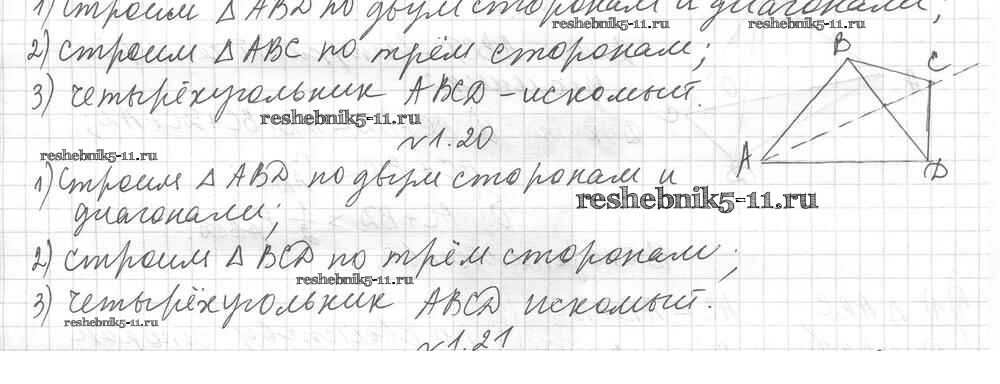 1) Строим △ABD по двум сторонам и диагонали;
reshebnik5-11.ru reshebnik5-11.ru
2) строим △ABC по трём сторонам;
3) четырёхугольник ABCD – искомый.
reshebnik5-11.ru
B
C
A
D
№1.20
reshebnik5-11.ru
1) Строим △ABD по двум сторонам и
reshebnik5-11.ru
диагонали;
2) строим △BCD по трём сторонам;
reshebnik5-11.ru
3) четырёхугольник ABCD искомый.
reshebnik5-11.ru
№1.21